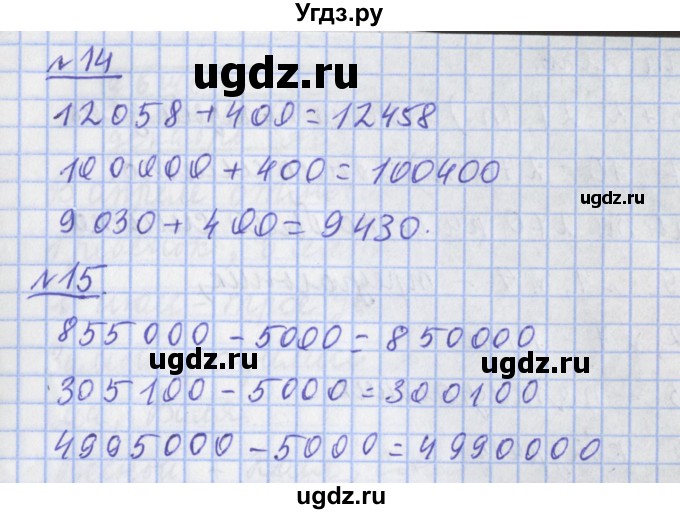 Угдз.ру
№14
ugdz.ru
12058+400=12458
100000+400=100400
ugdz.ru
9030+400=9430.
№15
855000-5000=850000
ugdz.ru
ugdz.ru
305100-5000=300100
4995000-5000=4990000
ugdz.ru
ugdz.ru